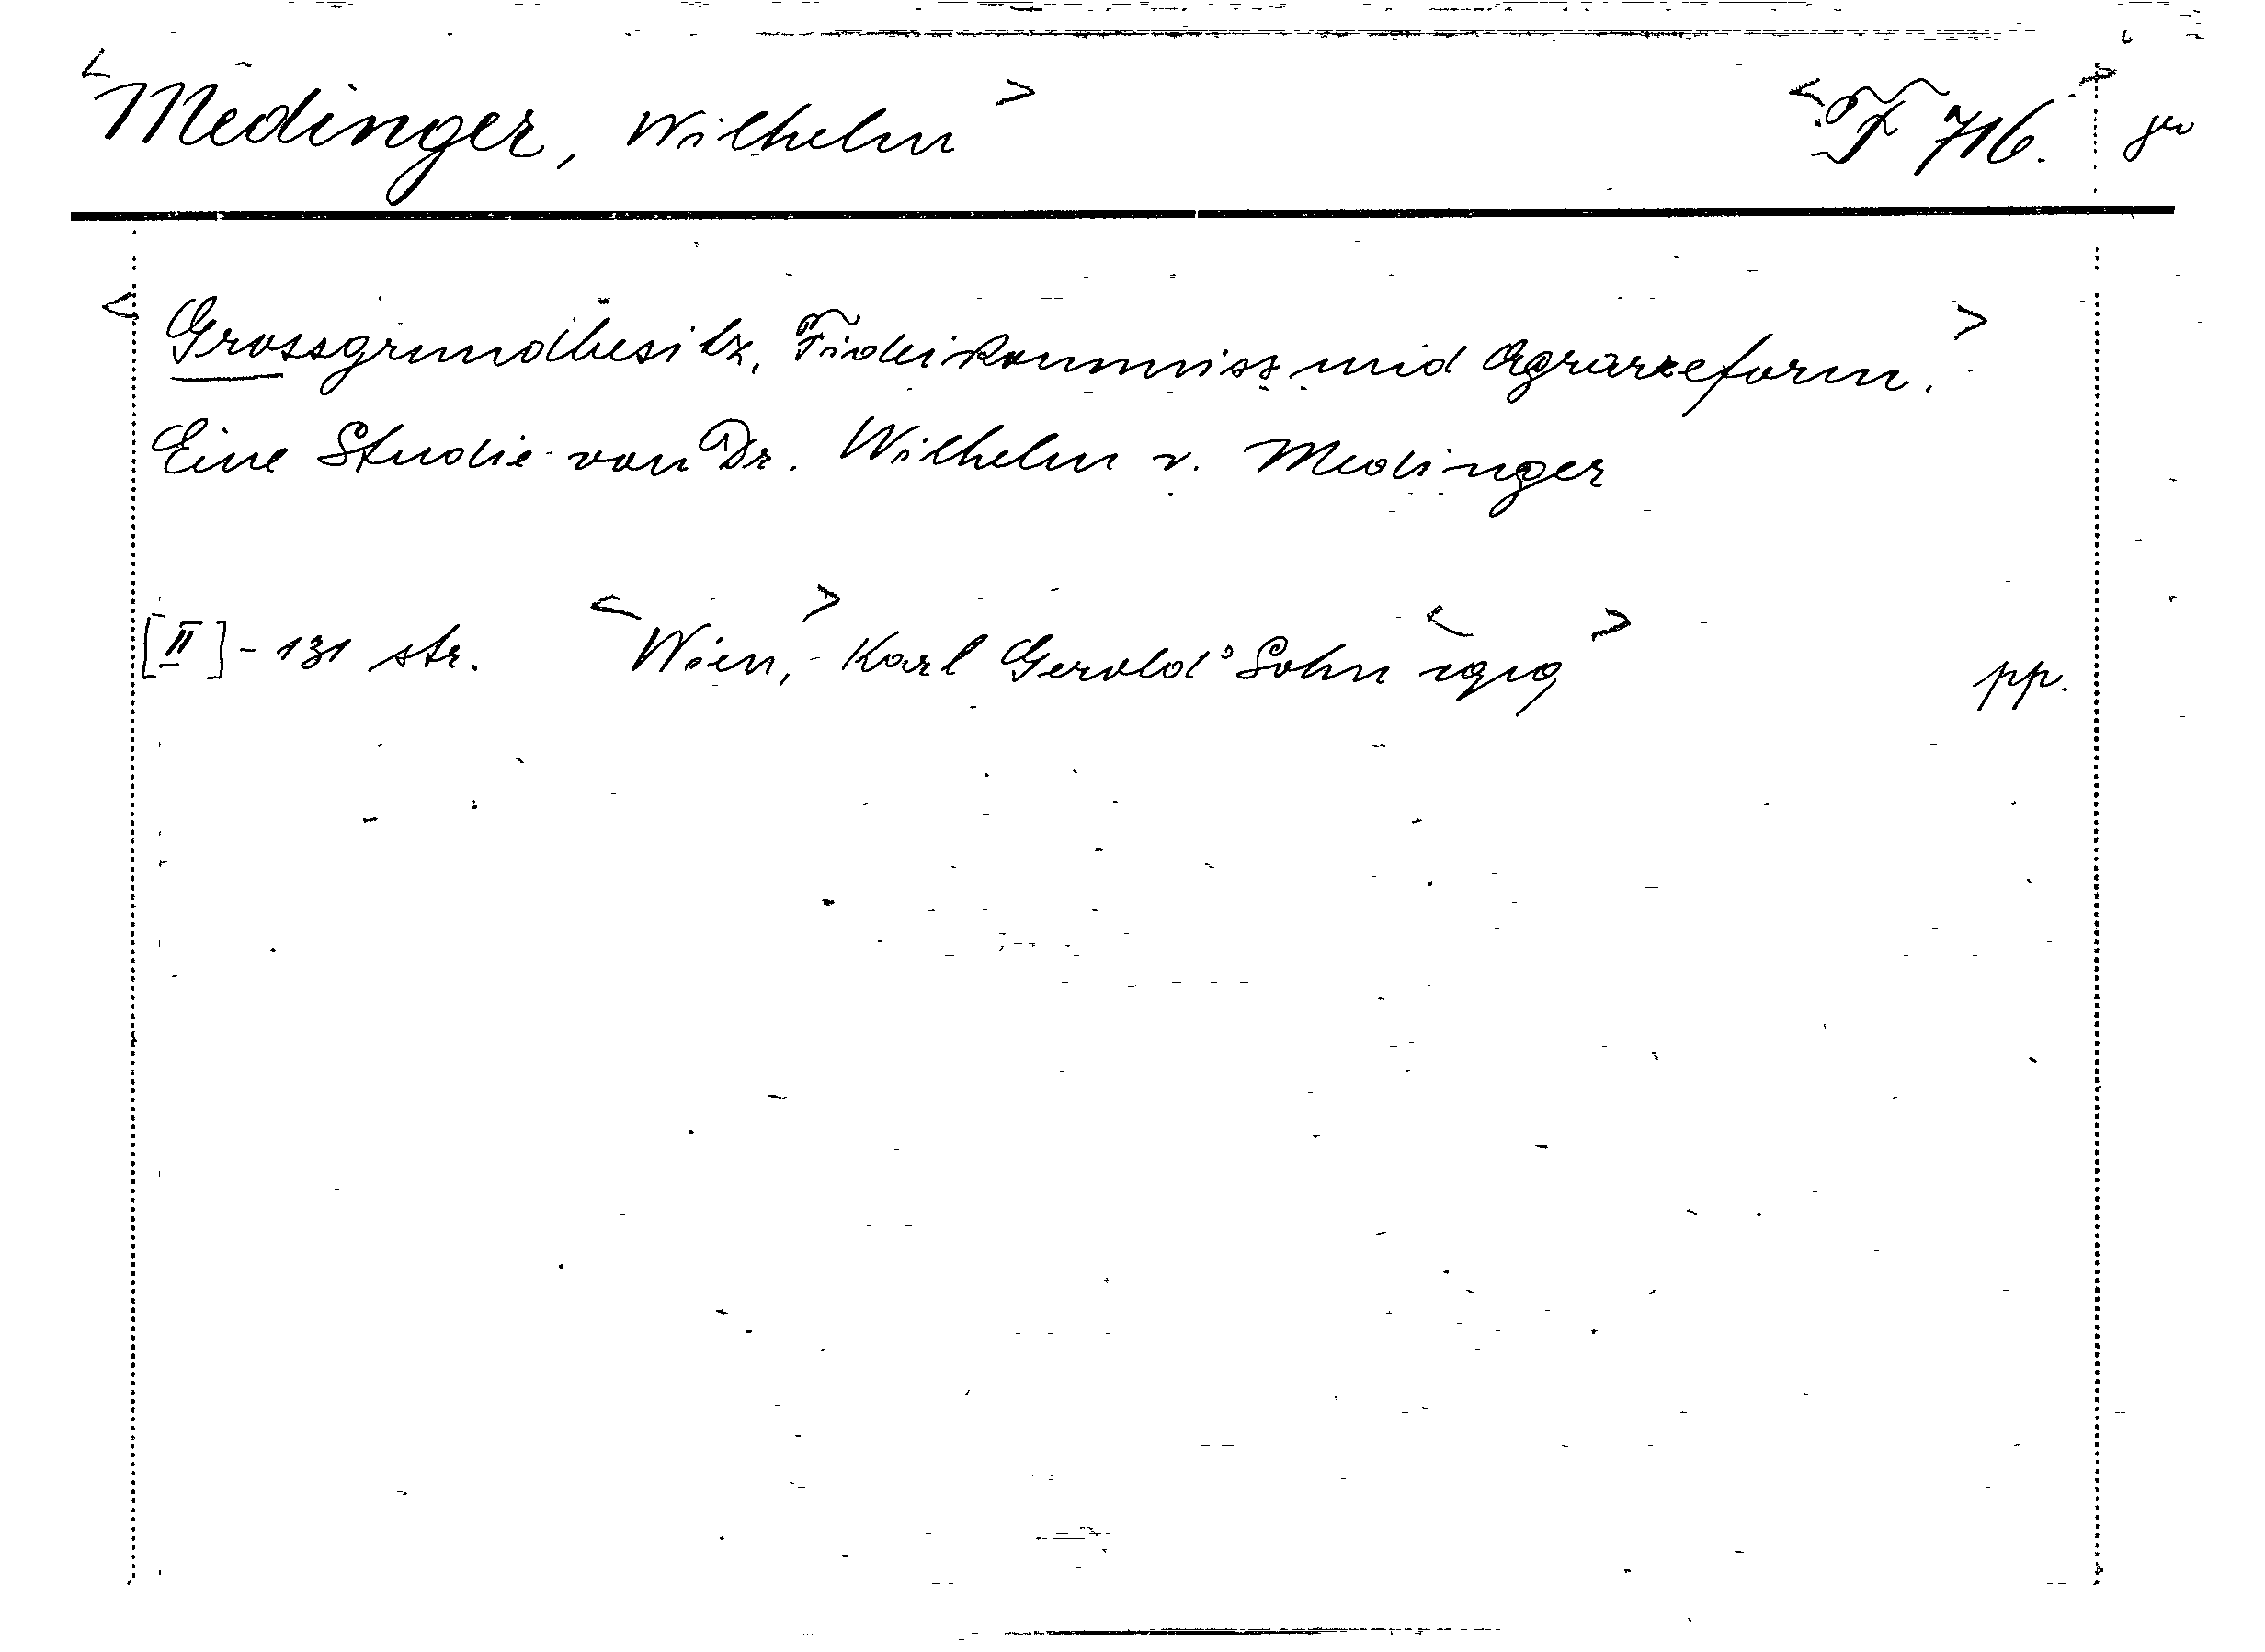 <Medinger, Wilhelm> <F 716.>
<Grossgrundbesitz, Fideikommiss und Agrarreform.>
Eine Studie von Dr. Wilhelm v. Medinger
[II] - 131 str. <Wien,> Karl Gerold's Sohn <1919> pp.